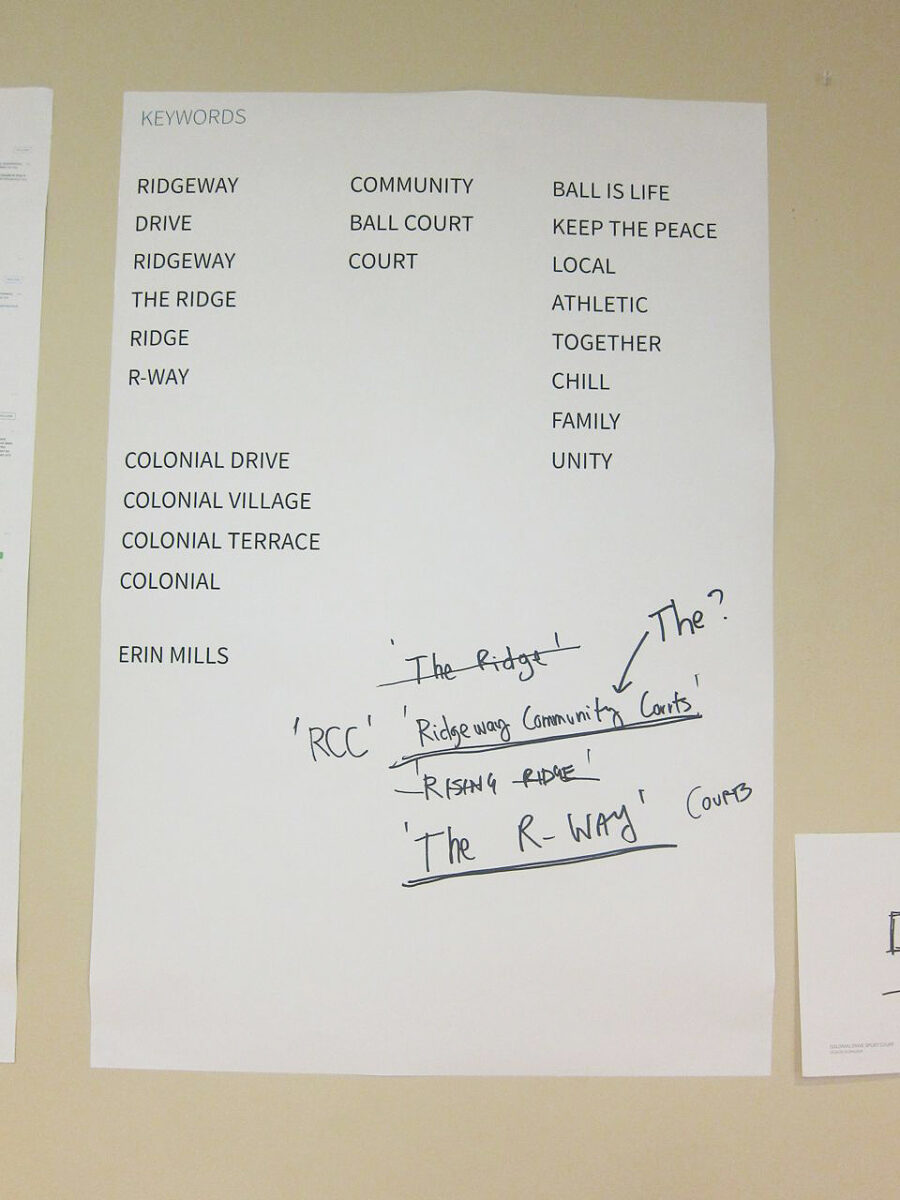 KEYWORDS
RIDGEWAY
DRIVE
RIDGEWAY
THE RIDGE
RIDGE
R-WAY
COLONIAL DRIVE
COLONIAL VILLAGE
COLONIAL TERRACE
COLONIAL
ERIN MILLS
COMMUNITY
BALL COURT
COURT
BALL IS LIFE
KEEP THE PEACE
LOCAL
ATHLETIC
TOGETHER
CHILL
FAMILY
UNITY
The?
'The Ridge'
'RCC' 'Ridgeway Community Courts'
'RISING RIDGE'
'The R-WAY' COURTS
COLONIAL DRIVE SPORT COURT